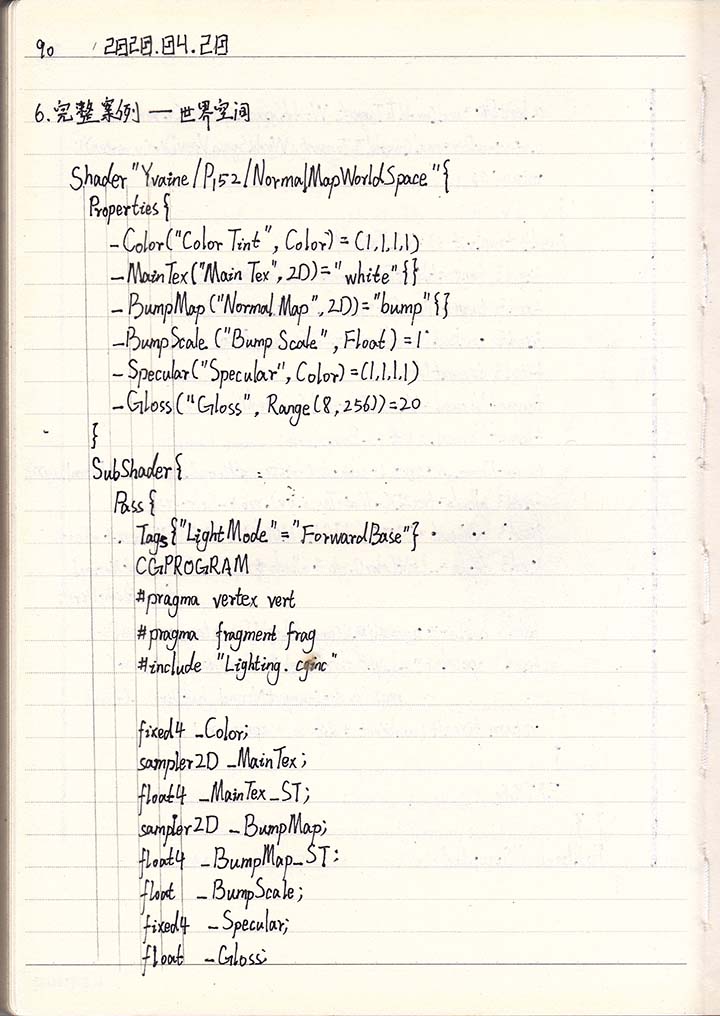 90 2020.04.20
6.完整案例 — 世界空间
Shader"Yvaine/P152/NormalMapWorldSpace"{
Properties{
_Color("Color Tint", Color)=(1,1,1,1)
_MainTex("Main Tex",2D)="white"{}
_BumpMap("Normal Map",2D)="bump"{}
_BumpScale("Bump Scale", Float)=1
_Specular("Specular", Color)=(1,1,1,1)
_Gloss("Gloss", Range(8,256))=20
}
SubShader{
Pass{
Tags{"LightMode"="ForwardBase"}
CGPROGRAM
#pragma vertex vert
#pragma fragment frag
#include "Lighting.cginc"
fixed4 _Color;
sampler2D _MainTex;
float4 _MainTex_ST;
sampler2D _BumpMap;
float4 _BumpMap_ST;
float _BumpScale;
fixed4 _Specular;
float _Gloss;